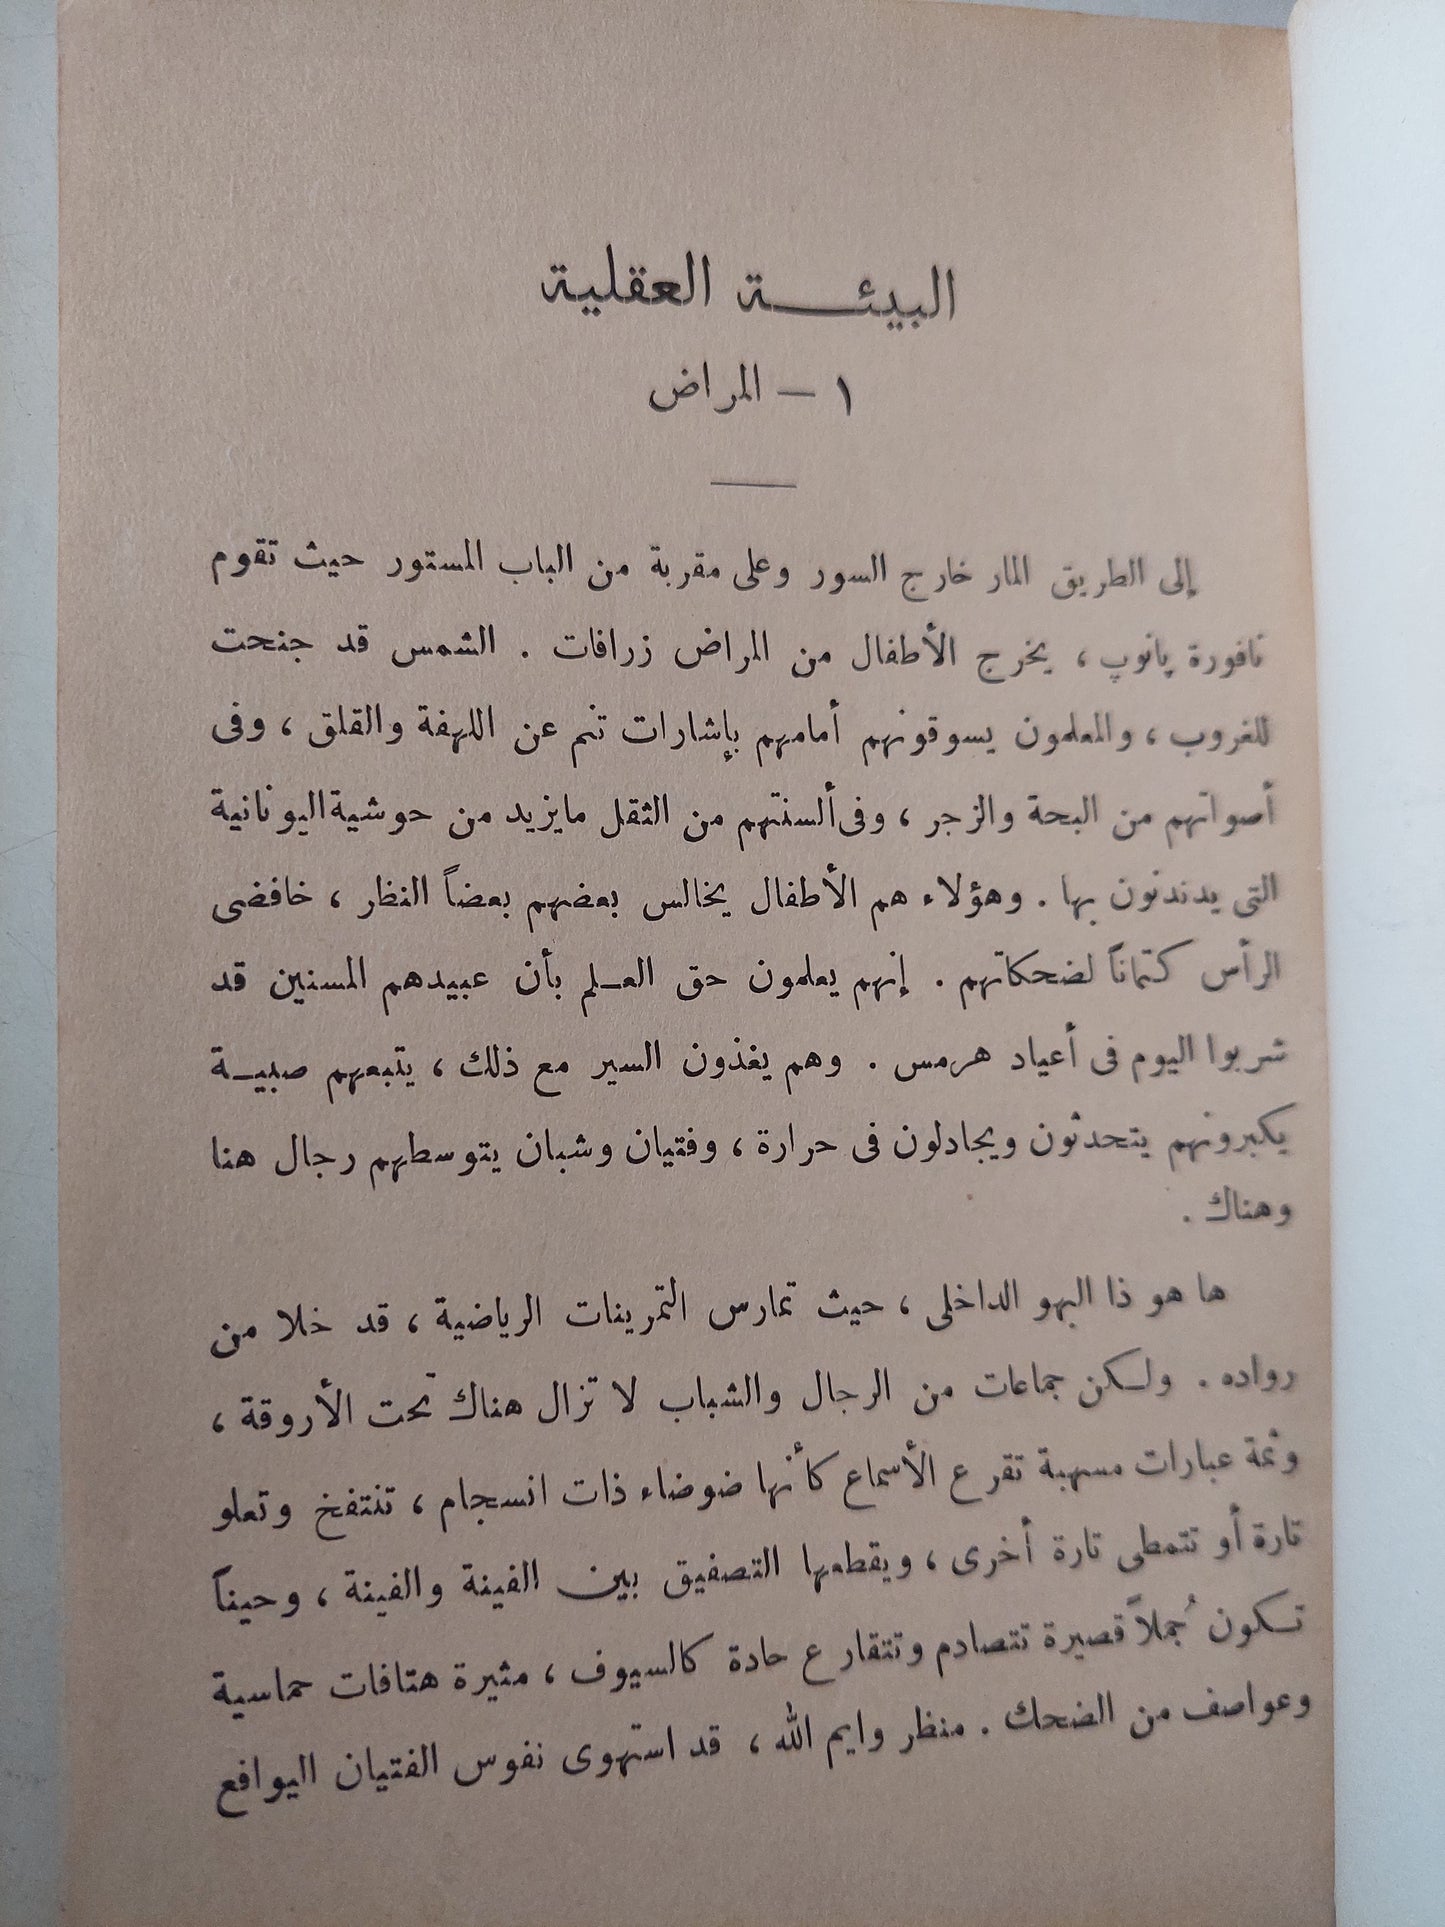 البيئـــة العقلية
١ — المراض
إلى الطريق المار خارج السور وعلى مقربة من الباب المستور حيث تقوم
نافورة پانوپ ، يخرج الأطفال من المراض زرافات . الشمس قد جنحت
للغروب ، والمعلمون يسوقونهم أمامهم بإشارات تنم عن اللهفة والقلق ، وفى
أصواتهم من البحة والزجر ، وفى ألسنتهم من الثقل مايزيد من حوشية اليونانية
التى يدندنون بها . وهؤلاء هم الأطفال يخالس بعضهم بعضاً النظر ، خافضى
الرأس كتماناً لضحكاتهم . إنهم يعلمون حق العـلم بأن عبيدهم المسنين قد
شربوا اليوم فى أعياد هرمس . وهم يغذون السير مع ذلك ، يتبعهم صبيـة
يكبرونهم يتحدثون ويجادلون فى حرارة ، وفتيان وشبان يتوسطهم رجال هنا
وهناك .
ها هو ذا البهو الداخلى ، حيث تمارس التمرينات الرياضية ، قد خلا من
رواده . ولـكن جماعات من الرجال والشباب لا تزال هناك تحت الأروقة ،
وثمة عبارات مسهبة تقرع الأسماع كأنها ضوضاء ذات انسجام ، تنتفخ وتعلو
تارة أو تتمطى تارة أخرى ، ويقطعها التصفيق بين الفينة والفينة ، وحيناً
تـكون جُملاً قصيرة تتصادم وتتقارع حادة كالسيوف ، مثيرة هتافات حماسية
وعواصف من الضحك . منظر وايم الله ، قد استهوى نفوس الفتيان اليوافع